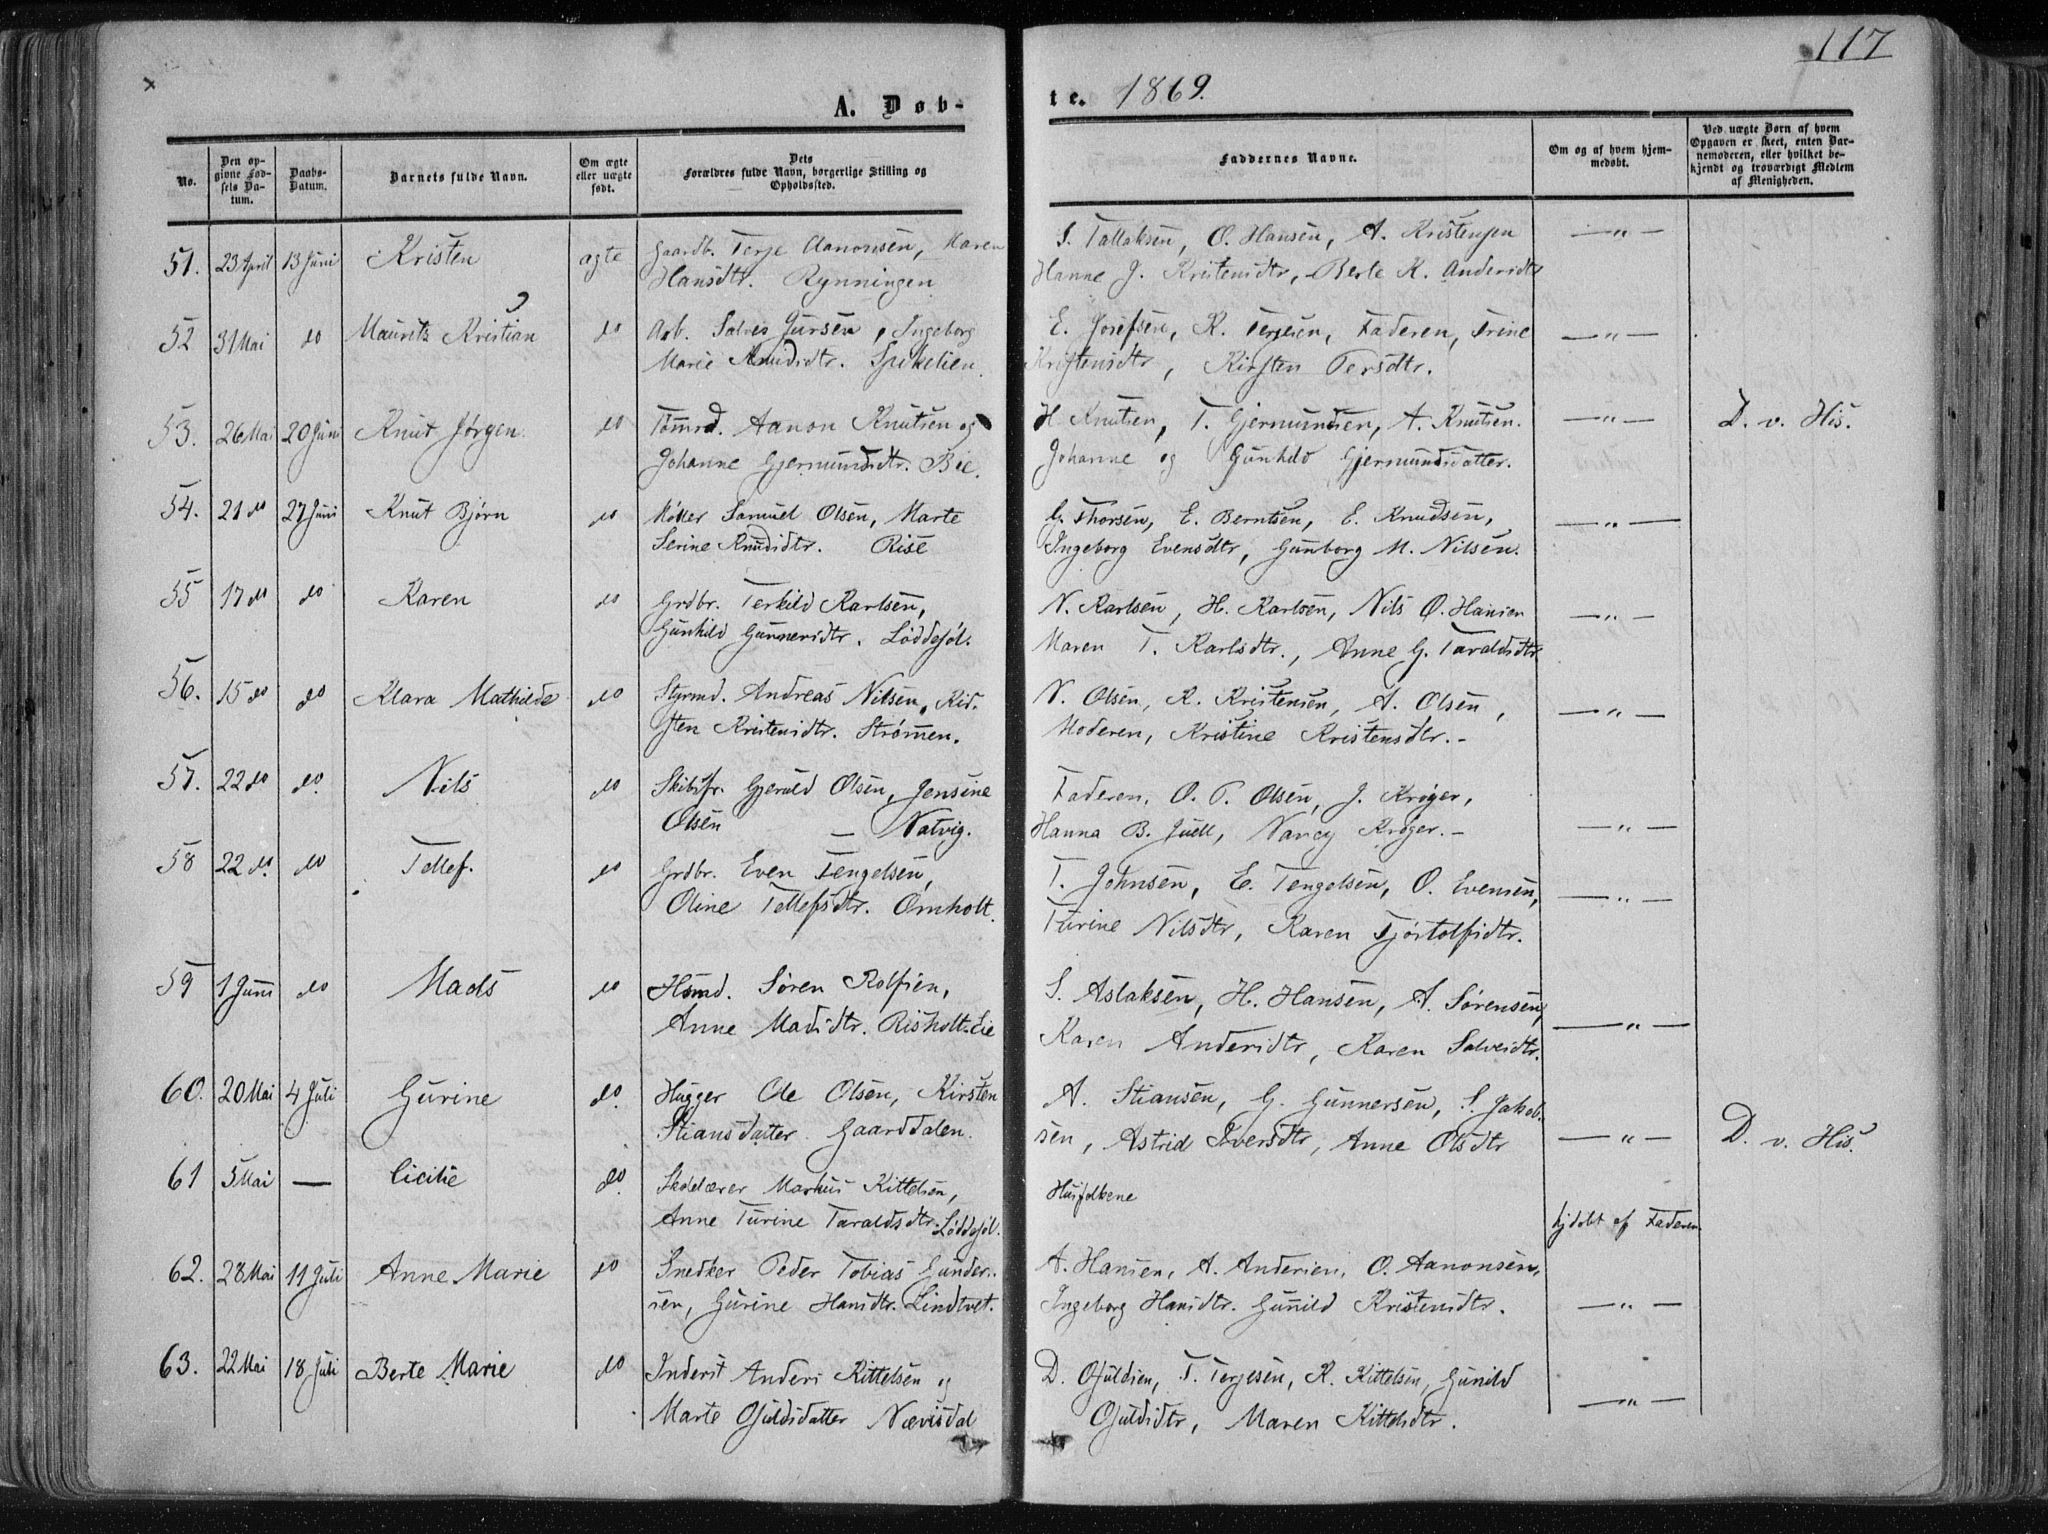 117
A. Døb-
te. 1869.
No.
Den op-
givne Fød-
sels Da-
tum.
Daabs-
Datum.
Barnets fulde Navn.
Om ægte
eller uægte
født.
Dets
Forældres fulde Navn, borgerlige Stilling og
Opholdssted.
Faddernes Navne.
Om og af hvem hjem-
medøbt.
Ved uægte Børn af hvem
Opgaven er skeet, enten Bar-
nemoderen, eller hvilket be-
kjendt og troværdigt Medlem
af Menigheden.
51. 23 April 13 Juni Kristen ægte Gaardb. Terje Aanonsen, Maren S. Tallaksen, O. Hansen, A. Kristensen — " —
Hansdtr. Rynningen Hanne J. Kristensdtr, Berte K. Andersdtr
52 31 Mai do Mauritz Kristian do Arb. Salves Jursen, Ingeborg E. Josefsen, K. Terjesen, Faderen, Trine — " —
Marie Knudsdtr. Spikelien. Kristensdtr, Kirsten Persdtr.
53. 26 Mai 20 Juni Knut Jørgen. do Tømrd. Aanon Knutsen og H Knutsen, T. Gjermundsen, A. Knutsen. — " — D. v. His.
Johanne Gjermundsdtr. Bie. Johanne og Gunhild Gjermundsdatter.
54. 21 do 27 Juni Knut Bjørn do Møller Samuel Olsen, Marte G. Thorsen, E. Berntsen, E. Knudsen, — " —
Serine Knudsdtr. Rise Ingeborg Evensdtr, Gunborg M. Nilsen.
55 17 do do Karen do Grdbr. Terkild Karlsen, N. Karlsen, H. Karlsen, Nils O. Hansen — " —
Gunhild Gunnersdtr. Løddesøl. Maren T. Karlsdtr., Anne G. Taraldsdtr
56. 15 do do Klara Mathilde do Styrmd. Andreas Nilsen, Kir- N. Olsen, K. Kristensen, A. Olsen, — " —
sten Kristensdtr. Strømmen. Moderen, Kristine Kristensdtr. -
57. 22 do do. Nils do Skibsfr. Gjeruld Olsen, Jensine Faderen, O. P. Olsen, J. Krøger, — " —
Olsen — Natvig. Hanna B. Juell, Nancy Krøger. -
58 22 do. do Tellef. do Grdbr. Even Tengelsen, T. Johnsen, E. Tengelsen, O. Evensen, — " —
Oline Tellefsdtr. Omholt. Turine Nilsdtr, Karen Tjøstolfsdtr.
59 1 Juni do Mads do Hsmd. Søren Rolfsen, S. Aslaksen, H. Hansen, A. Sørensen, — " —
Anne Madsdtr. Risholt. Lie Karen Andersdtr, Karen Salvesdtr.
60. 20 Mai 4 Juli Gurine do. Hugger Ole Olsen, Kirsten A. Stiansen, G. Gunnersen, S. Jakob- — " — D. v. His.
Stiansdatter. Gaarddalen. sen, Astrid Iversdtr, Anne Olsdtr
61 5 Mai — Cicilie do. Skolelærer Markus Kittelsen, Husfolkene
Anne Turine Taraldsdtr. Løddesøl. hjdøbt af Faderen
62. 28 Mai 11 Juli Anne Marie do Snedker Peder Tobias Gunder- A. Hansen, A. Andersen, O. Aanonsen, — " —
sen, Gurine Hansdtr. Lindtvet. Ingeborg Hansdtr. Gunild Kristensdtr.
63. 22 Mai 18 Juli Berte Marie do Inderst Anders Kittelsen og D. Ofuldsen, T. Terjesen, K. Kittelsen, Gunild — " —
Marte Ofuldsdatter Nævisdal Ofuldsdtr, Maren Kittelsdtr.